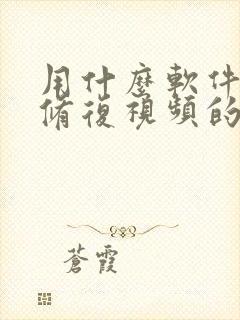 用什麼軟件
脩復視頻的
蒼霞